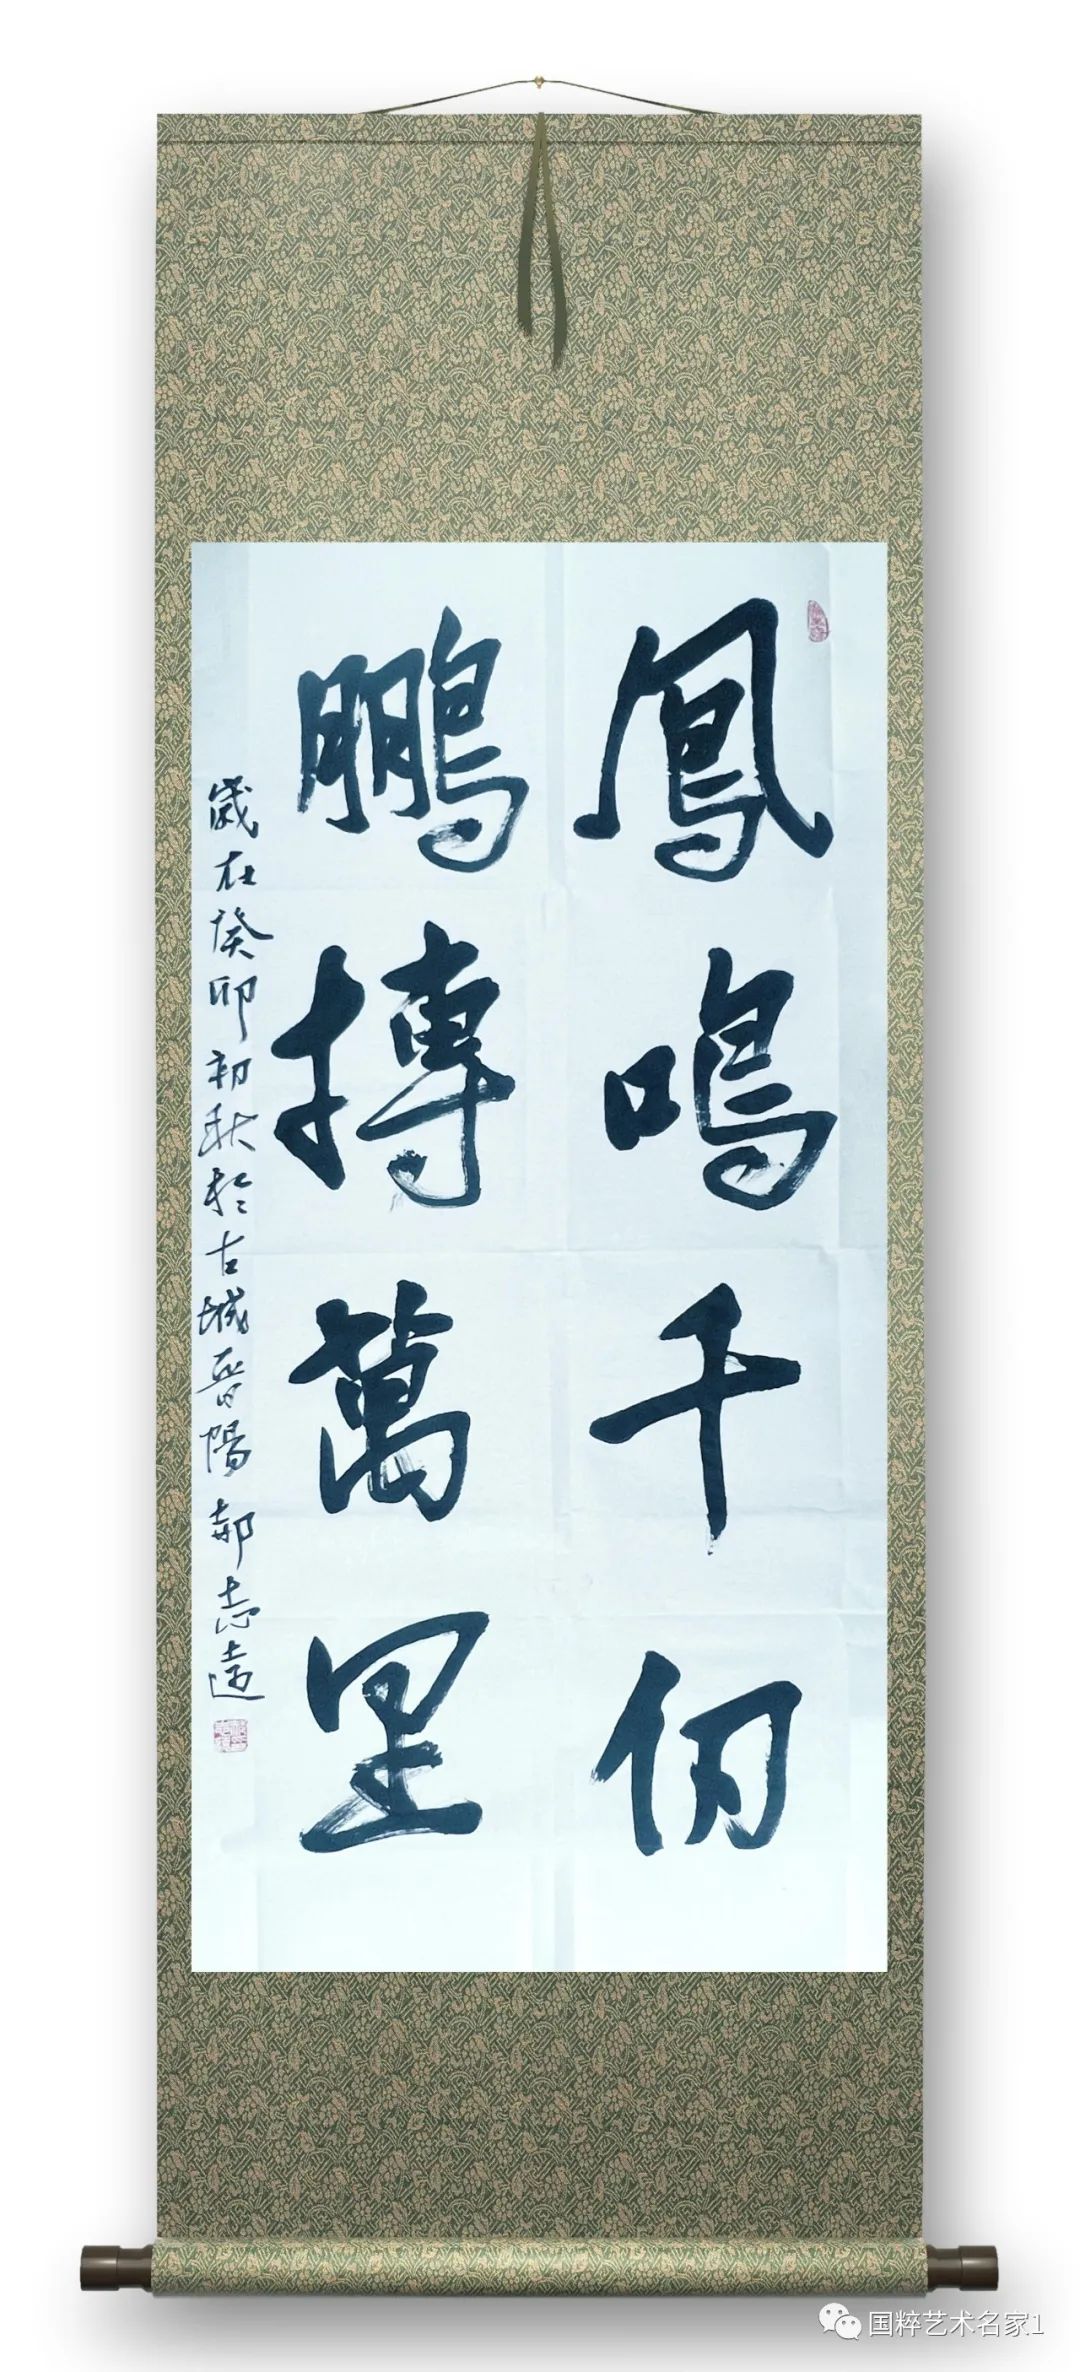 鳳鳴千仞
鵬搏萬里
歲在癸卯初秋於古城晉陽郝志遠
国粹艺术名家1